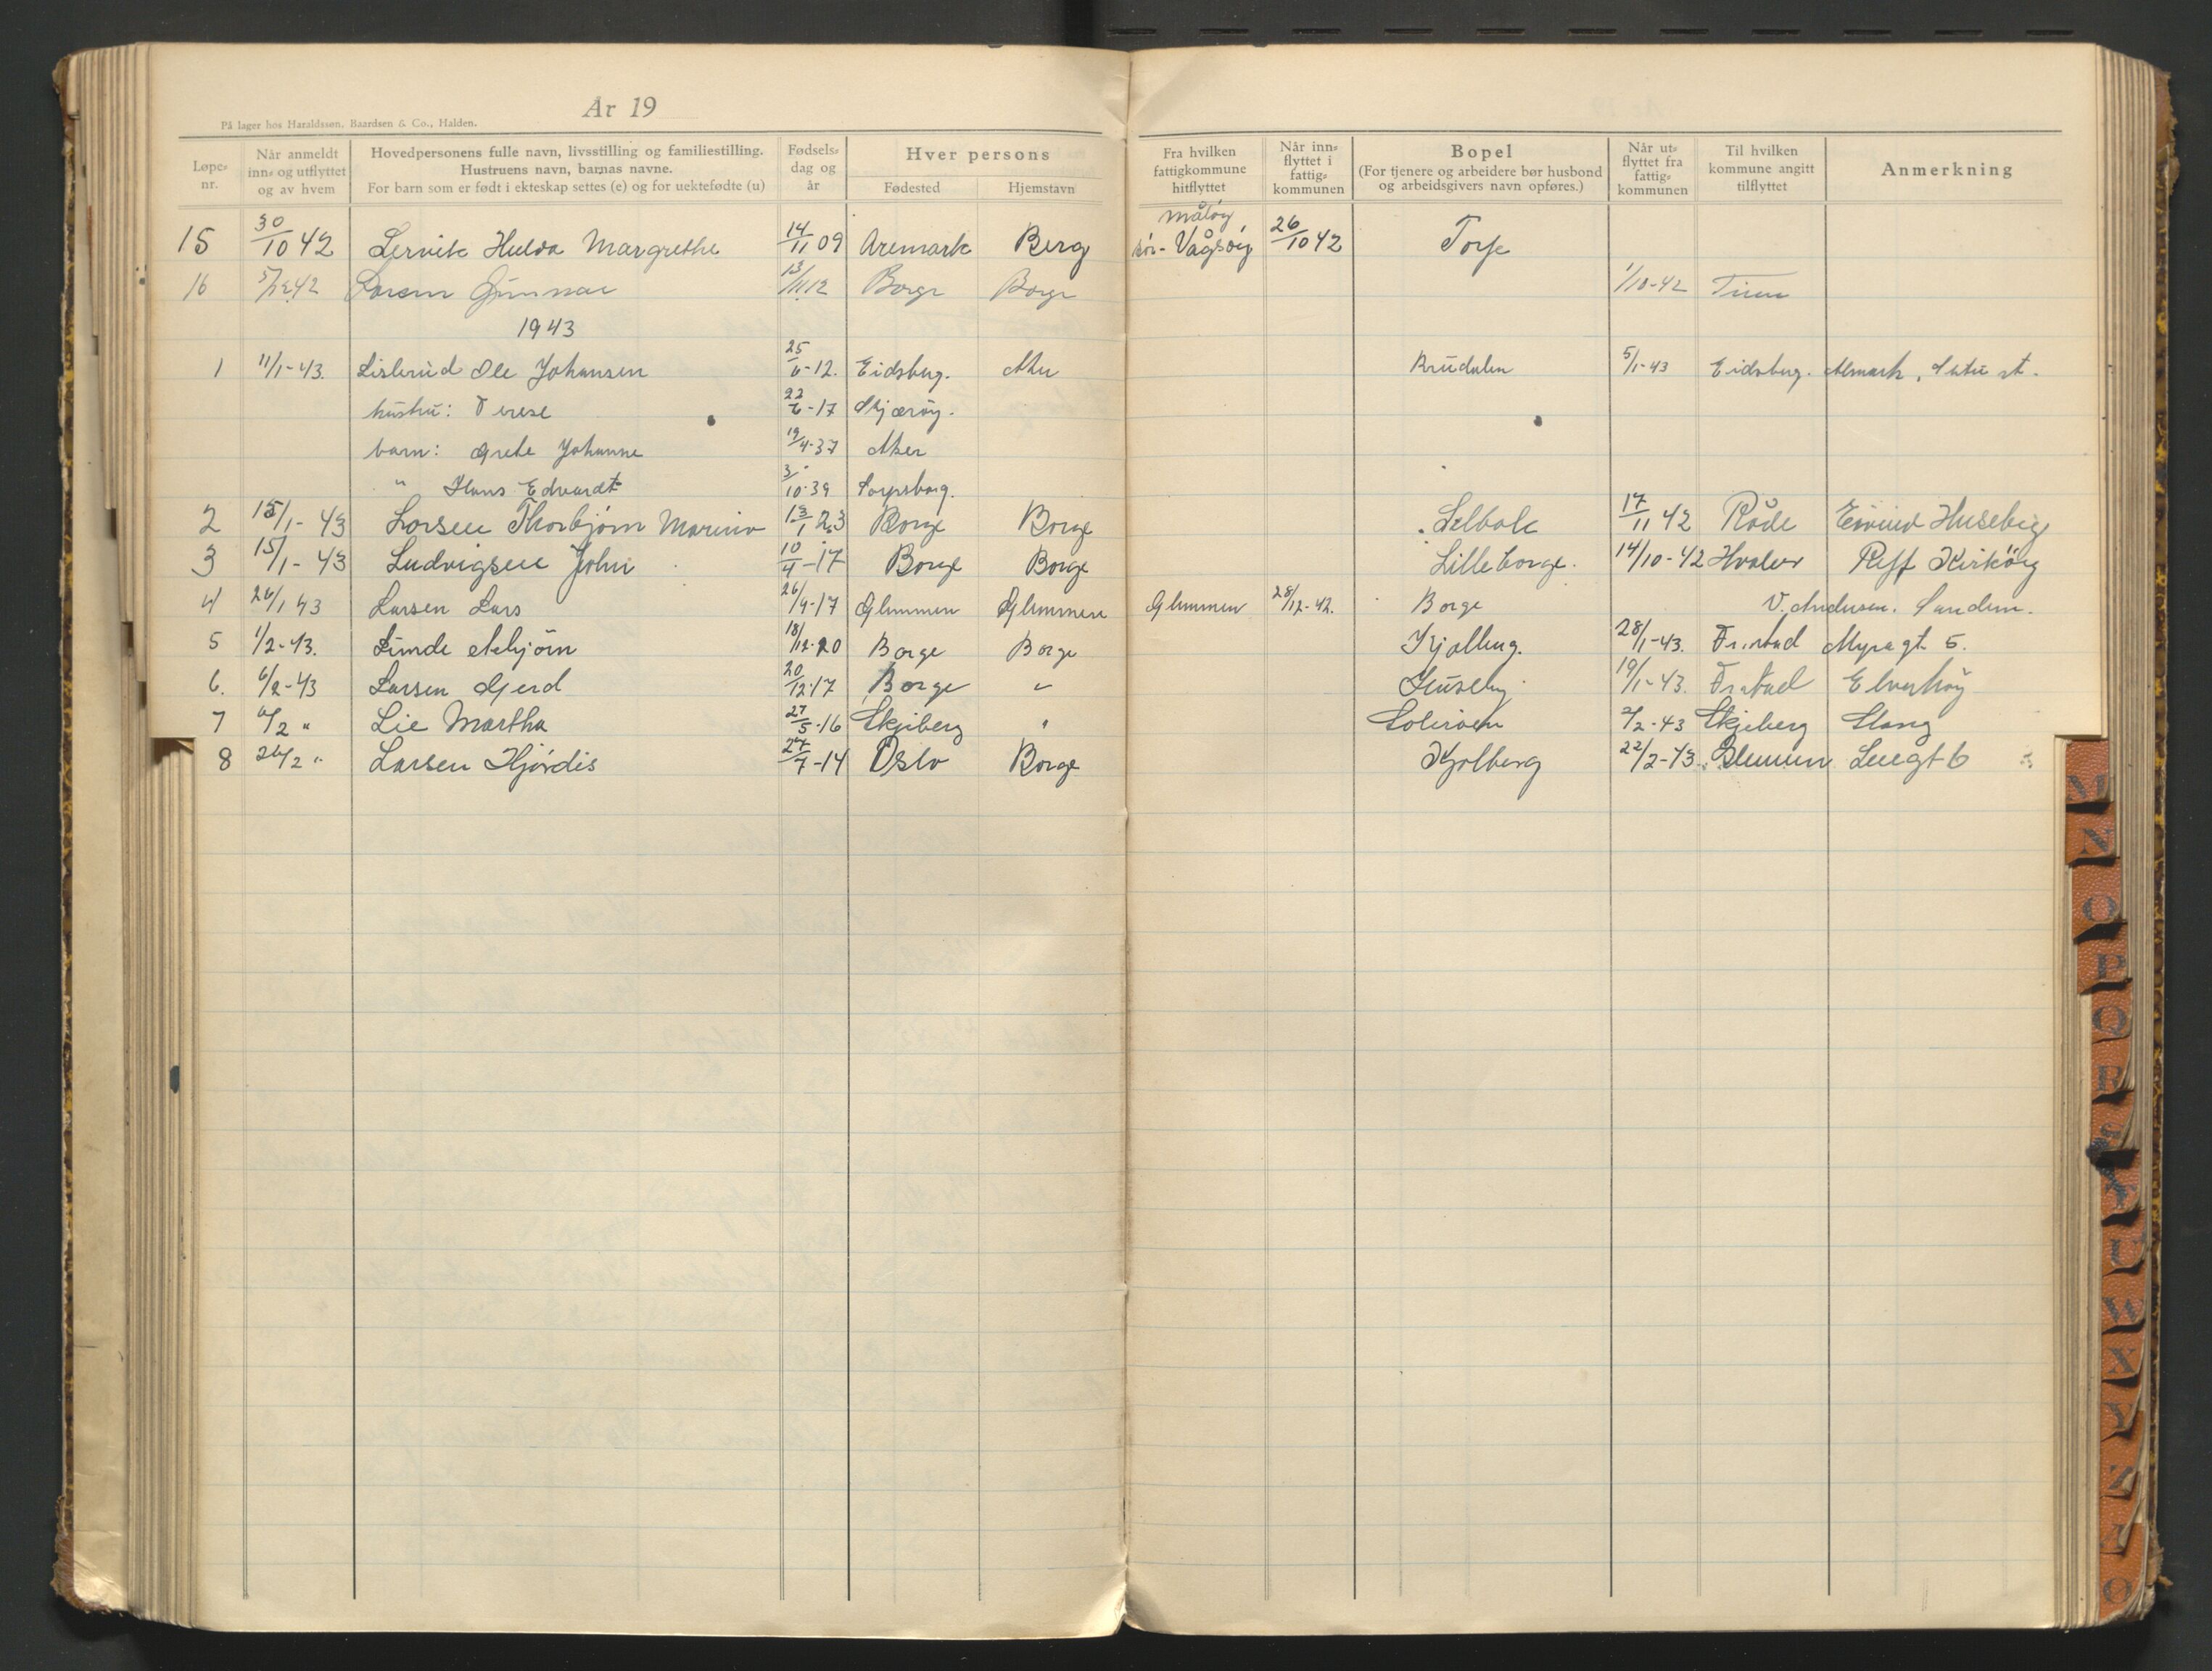 År 19
På lager hos Haraldssøn, Baardsen & Co., Halden.
Løpe-nr. | Når anmeldt inn- og utflyttet og av hvem | Hovedpersonens fulle navn, livsstilling og familiestilling. Hustruens navn, barnas navne. For barn som er født i ekteskap settes (e) og for uektefødte (u) | Fødsels-dag og år | Hver persons Fødested | Hjemstavn | Fra hvilken fattigkommune hitflyttet | Når inn-flyttet i fattig-kommunen | Bopel (For tjenere og arbeidere bør husbond og arbeidsgivers navn opføres.) | Når ut-flyttet fra fattig-kommunen | Til hvilken kommune angitt tilflyttet | Anmerkning
15 | 30/10 42 | Lervik Hulda Margrethe | 14/11 09 | Aremark | Berg | Måløy Sør-Vågsøy | 26/10 42 | Torp
16 | 5/12 42 | Gunnar | 13/11 12 | Borge | Borge | 1/10-42
1943
1 | 11/1-43. | Lislerud Ole Johansen | 25/6-12. | Eidsberg. | Aker | Krudalen | 5/1-43 | Eidsberg.
hustru: Terese | 22/6-17 | Skjærøy.
barn: Grete Johanne | 19/4-37 | Aker
" Hans Edvardt | 3/10-39 | Sarpsborg.
2 | 15/1-43 | Larsen Thorbjørn Marino | 13/1 23 | Borge | Borge | Selbak | 17/11 42 | Råde | Eivind Huseby
3 | 15/1-43 | Ludvigsen John | 10/4-17 | Borge | Borge | Lilleborge. | 14/10-42 | Hvaler | Kirkøy
4 | 26/1 43 | Larsen Lars | 26/9-17 | Glemmen | Glemmen | Glemmen | 28/12-42. | Borge | V. Andersen. Sandem.
5 | 1/2-43. | Linde Asbjørn | 18/12-20 | Borge | Borge | Kjølberg. | 28/1-43. | Fr.stad | Myragt 5.
6. | 6/2-43 | Larsen Gerd | 20/12-17 | Borge | " | Huseby | 19/1-43. | Fr.stad | Elverhøy
7 | 6/2 " | Lie Martha | 27/5-16 | Skjeberg | " | 2/2-43 | Skjeberg | Stang
8 | 26/2 " | Larsen Hjørdis | 27/7-14 | Oslo | Borge | Kjølberg | 22/2-43. | Glemmen | Luegt 6
M
N
O
P
Q
R
S
T
U
W
X
Y
Z
Æ
Ø